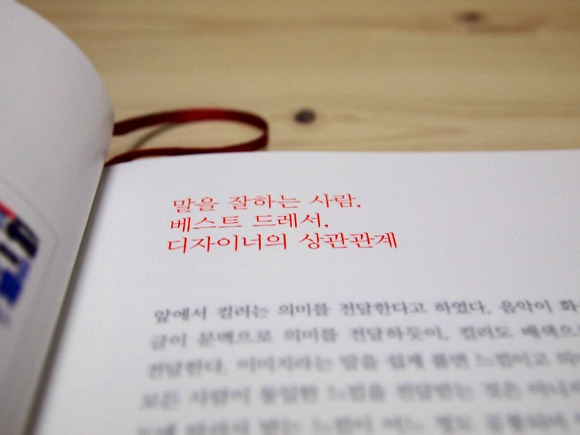 말을 잘하는 사람,
베스트 드레서,
디자이너의 상관관계
앞에서 컬러는 의미를 전달한다고 하였다. 음악이 화
글이 문맥으로 의미를 전달하듯이, 컬러도 배색으
전달한다. 이미지라는 말을 쉽게 풀면 느낌이고 의
모든 사람이 동일한 느낌을 전달받는 것은 아니